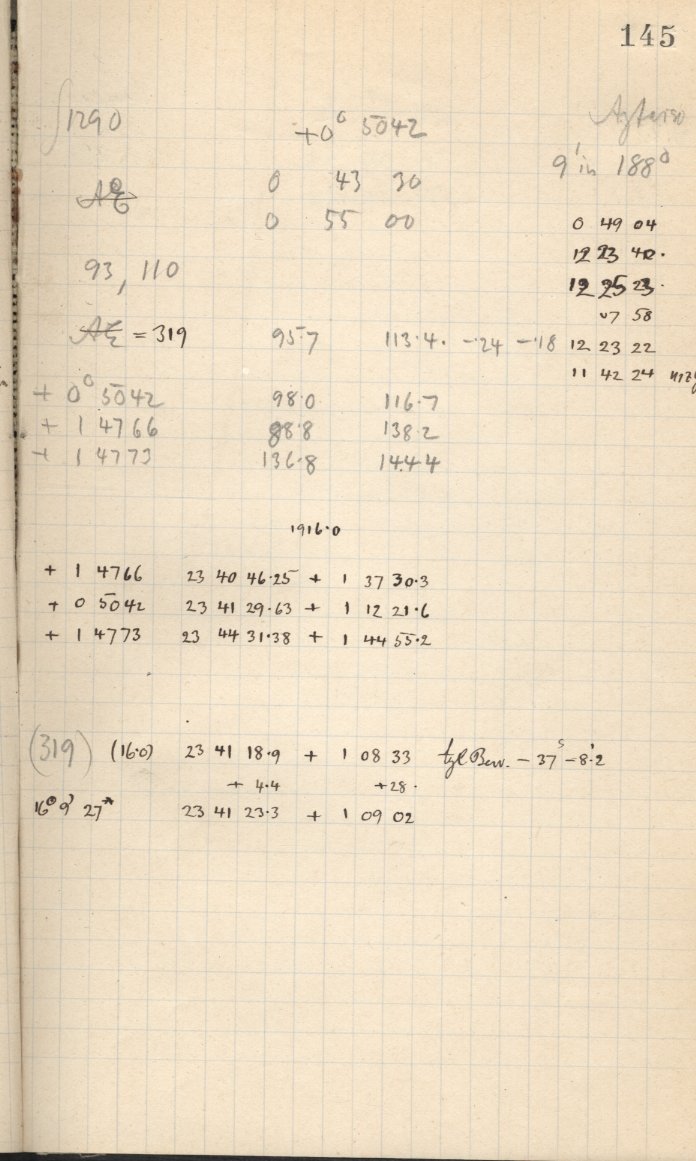 145
1290 +0° 5042
9' in 188°
AE 0 43 30
0 55 00
0 49 04
12 23 42.
93, 110
12 25 23.
07 58
AE = 319 95.7 113.4. -.24 -.18 12 23 22
11 42 24
+ 0° 5042 98.0 116.7
+ 1 4766 88.8 138.2
+ 1 4773 136.8 144.4
1916.0
+ 1 4766 23 40 46.25 + 1 37 30.3
+ 0 5042 23 41 29.63 + 1 12 21.6
+ 1 4773 23 44 31.38 + 1 44 55.2
(319) (16.0) 23 41 18.9 + 1 08 33 tgl Bew. - 37ˢ - 8'.2
+ 4.4 +28.
23 41 23.3 + 1 09 02